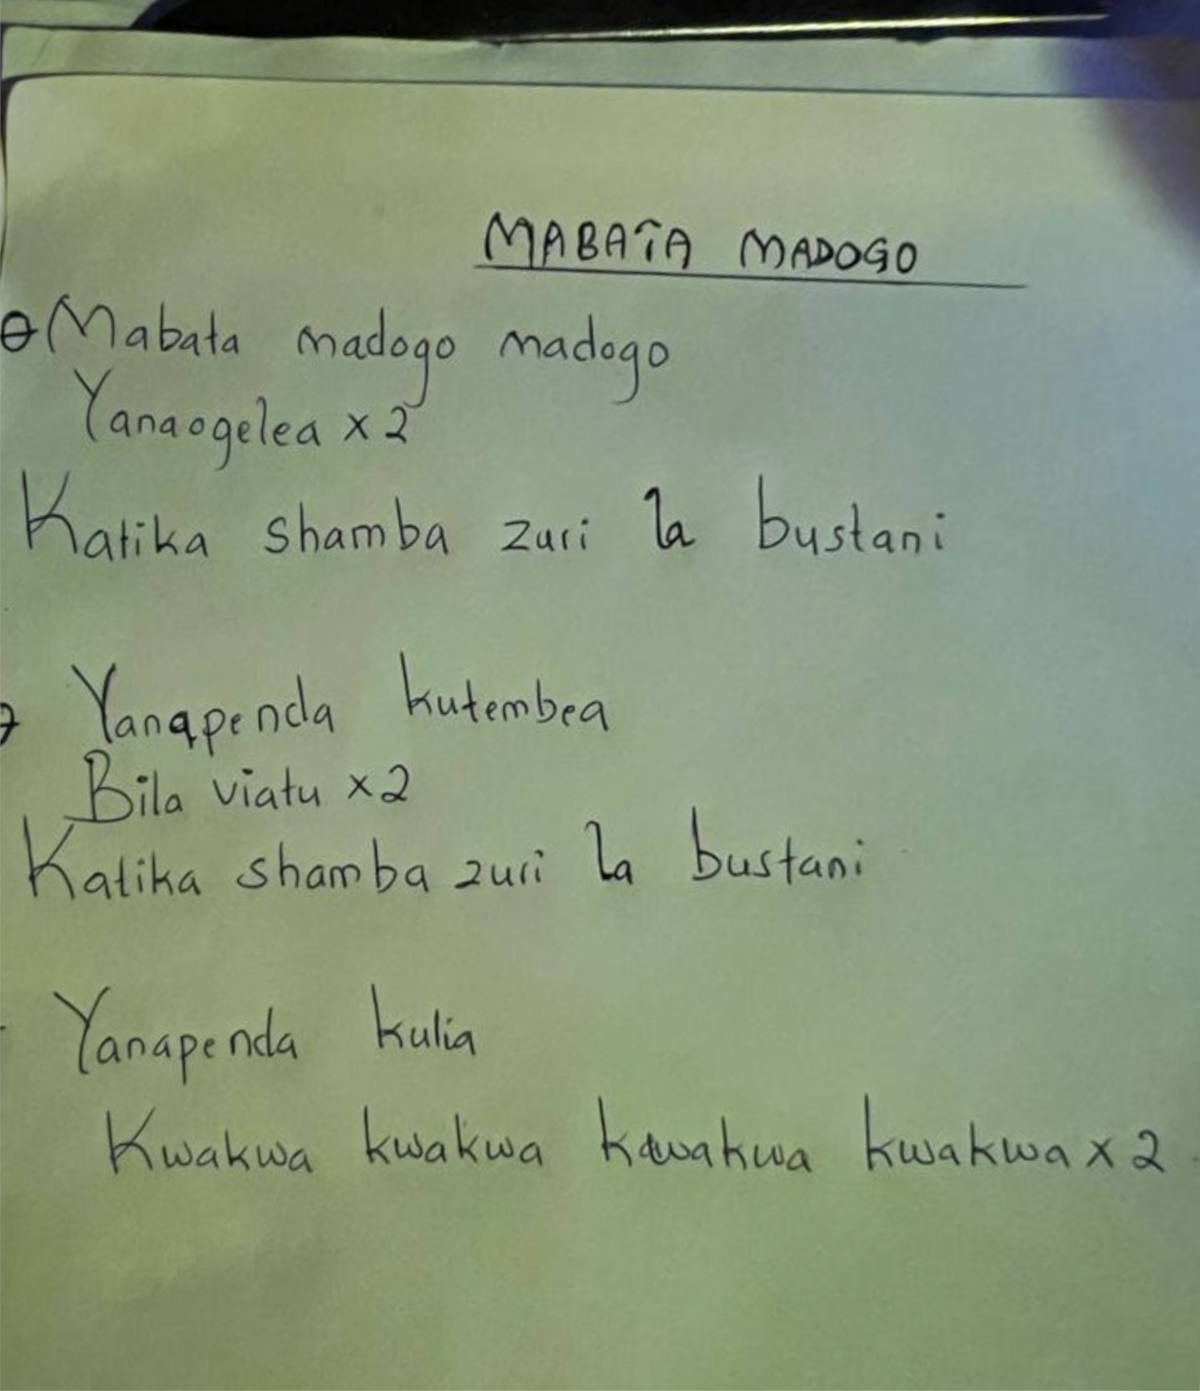 MABATA MADOGO
Mabata madogo madogo
Yanaogelea x 2
Katika shamba zuri la bustani
Yanapenda kutembea
Bila viatu x2
Katika shamba zuri la bustani
Yanapenda kulia
Kwakwa kwakwa kwakwa kwakwa x 2